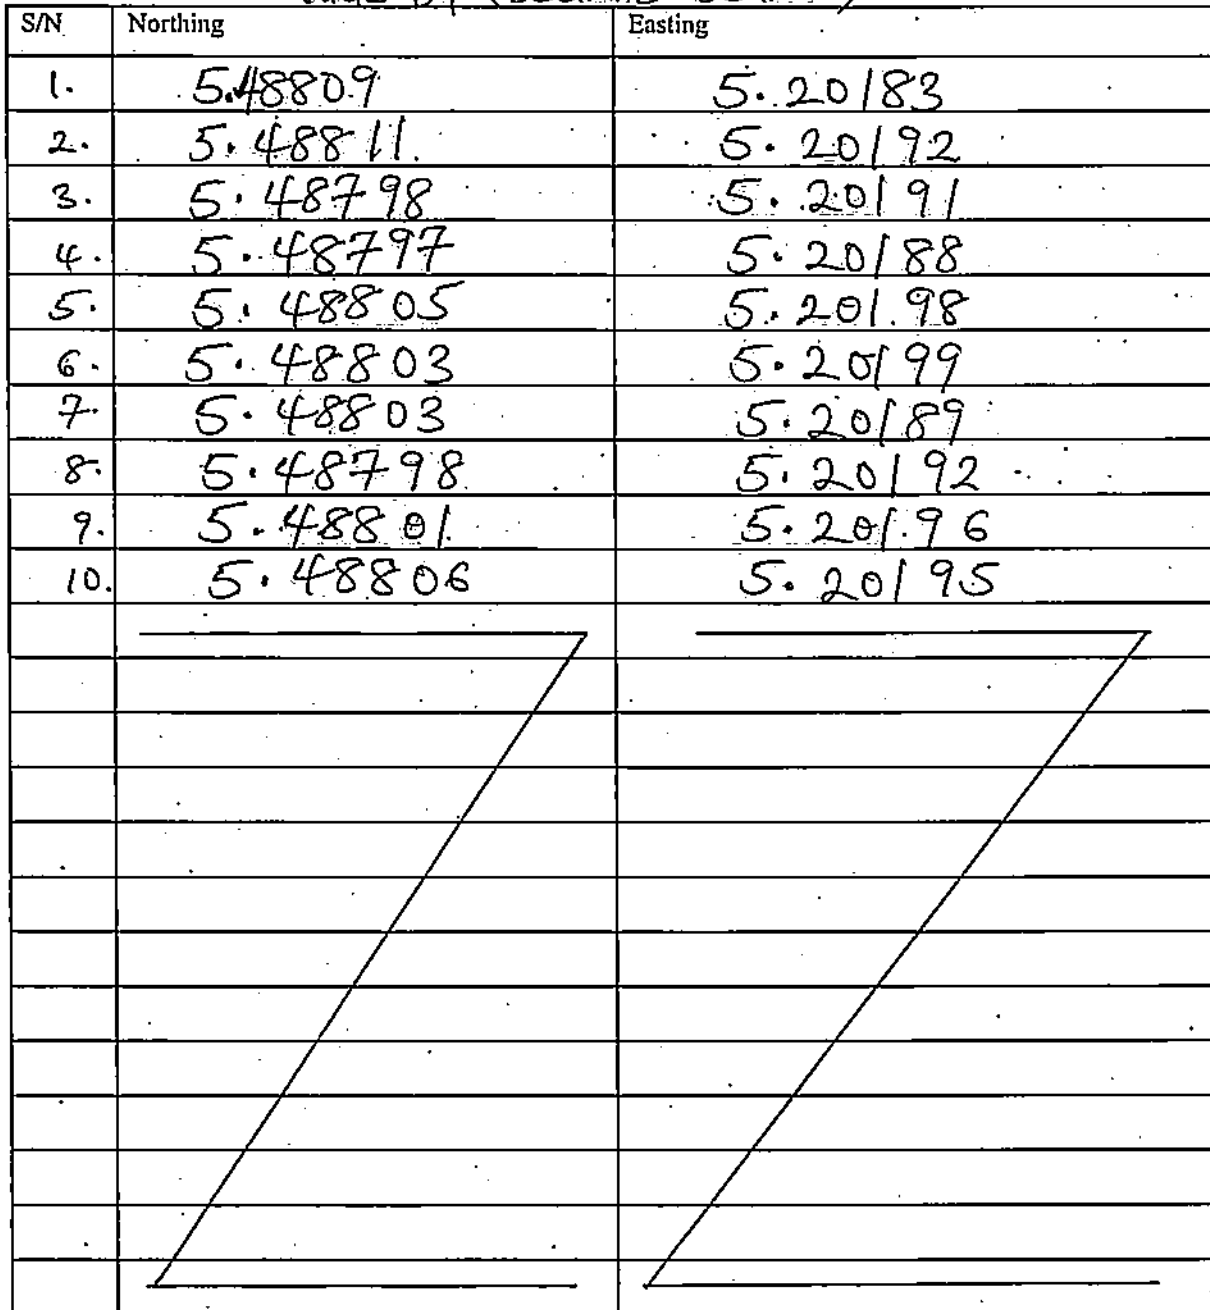 S/N Northing Easting
1. 5.48809 5.20183
2. 5.48811 5.20192
3. 5.48798 5.20191
4. 5.48797 5.20188
5. 5.48805 5.20198
6. 5.48803 5.20199
7. 5.48803 5.20189
8. 5.48798 5.20192
9. 5.48801 5.20196
10. 5.48806 5.20195